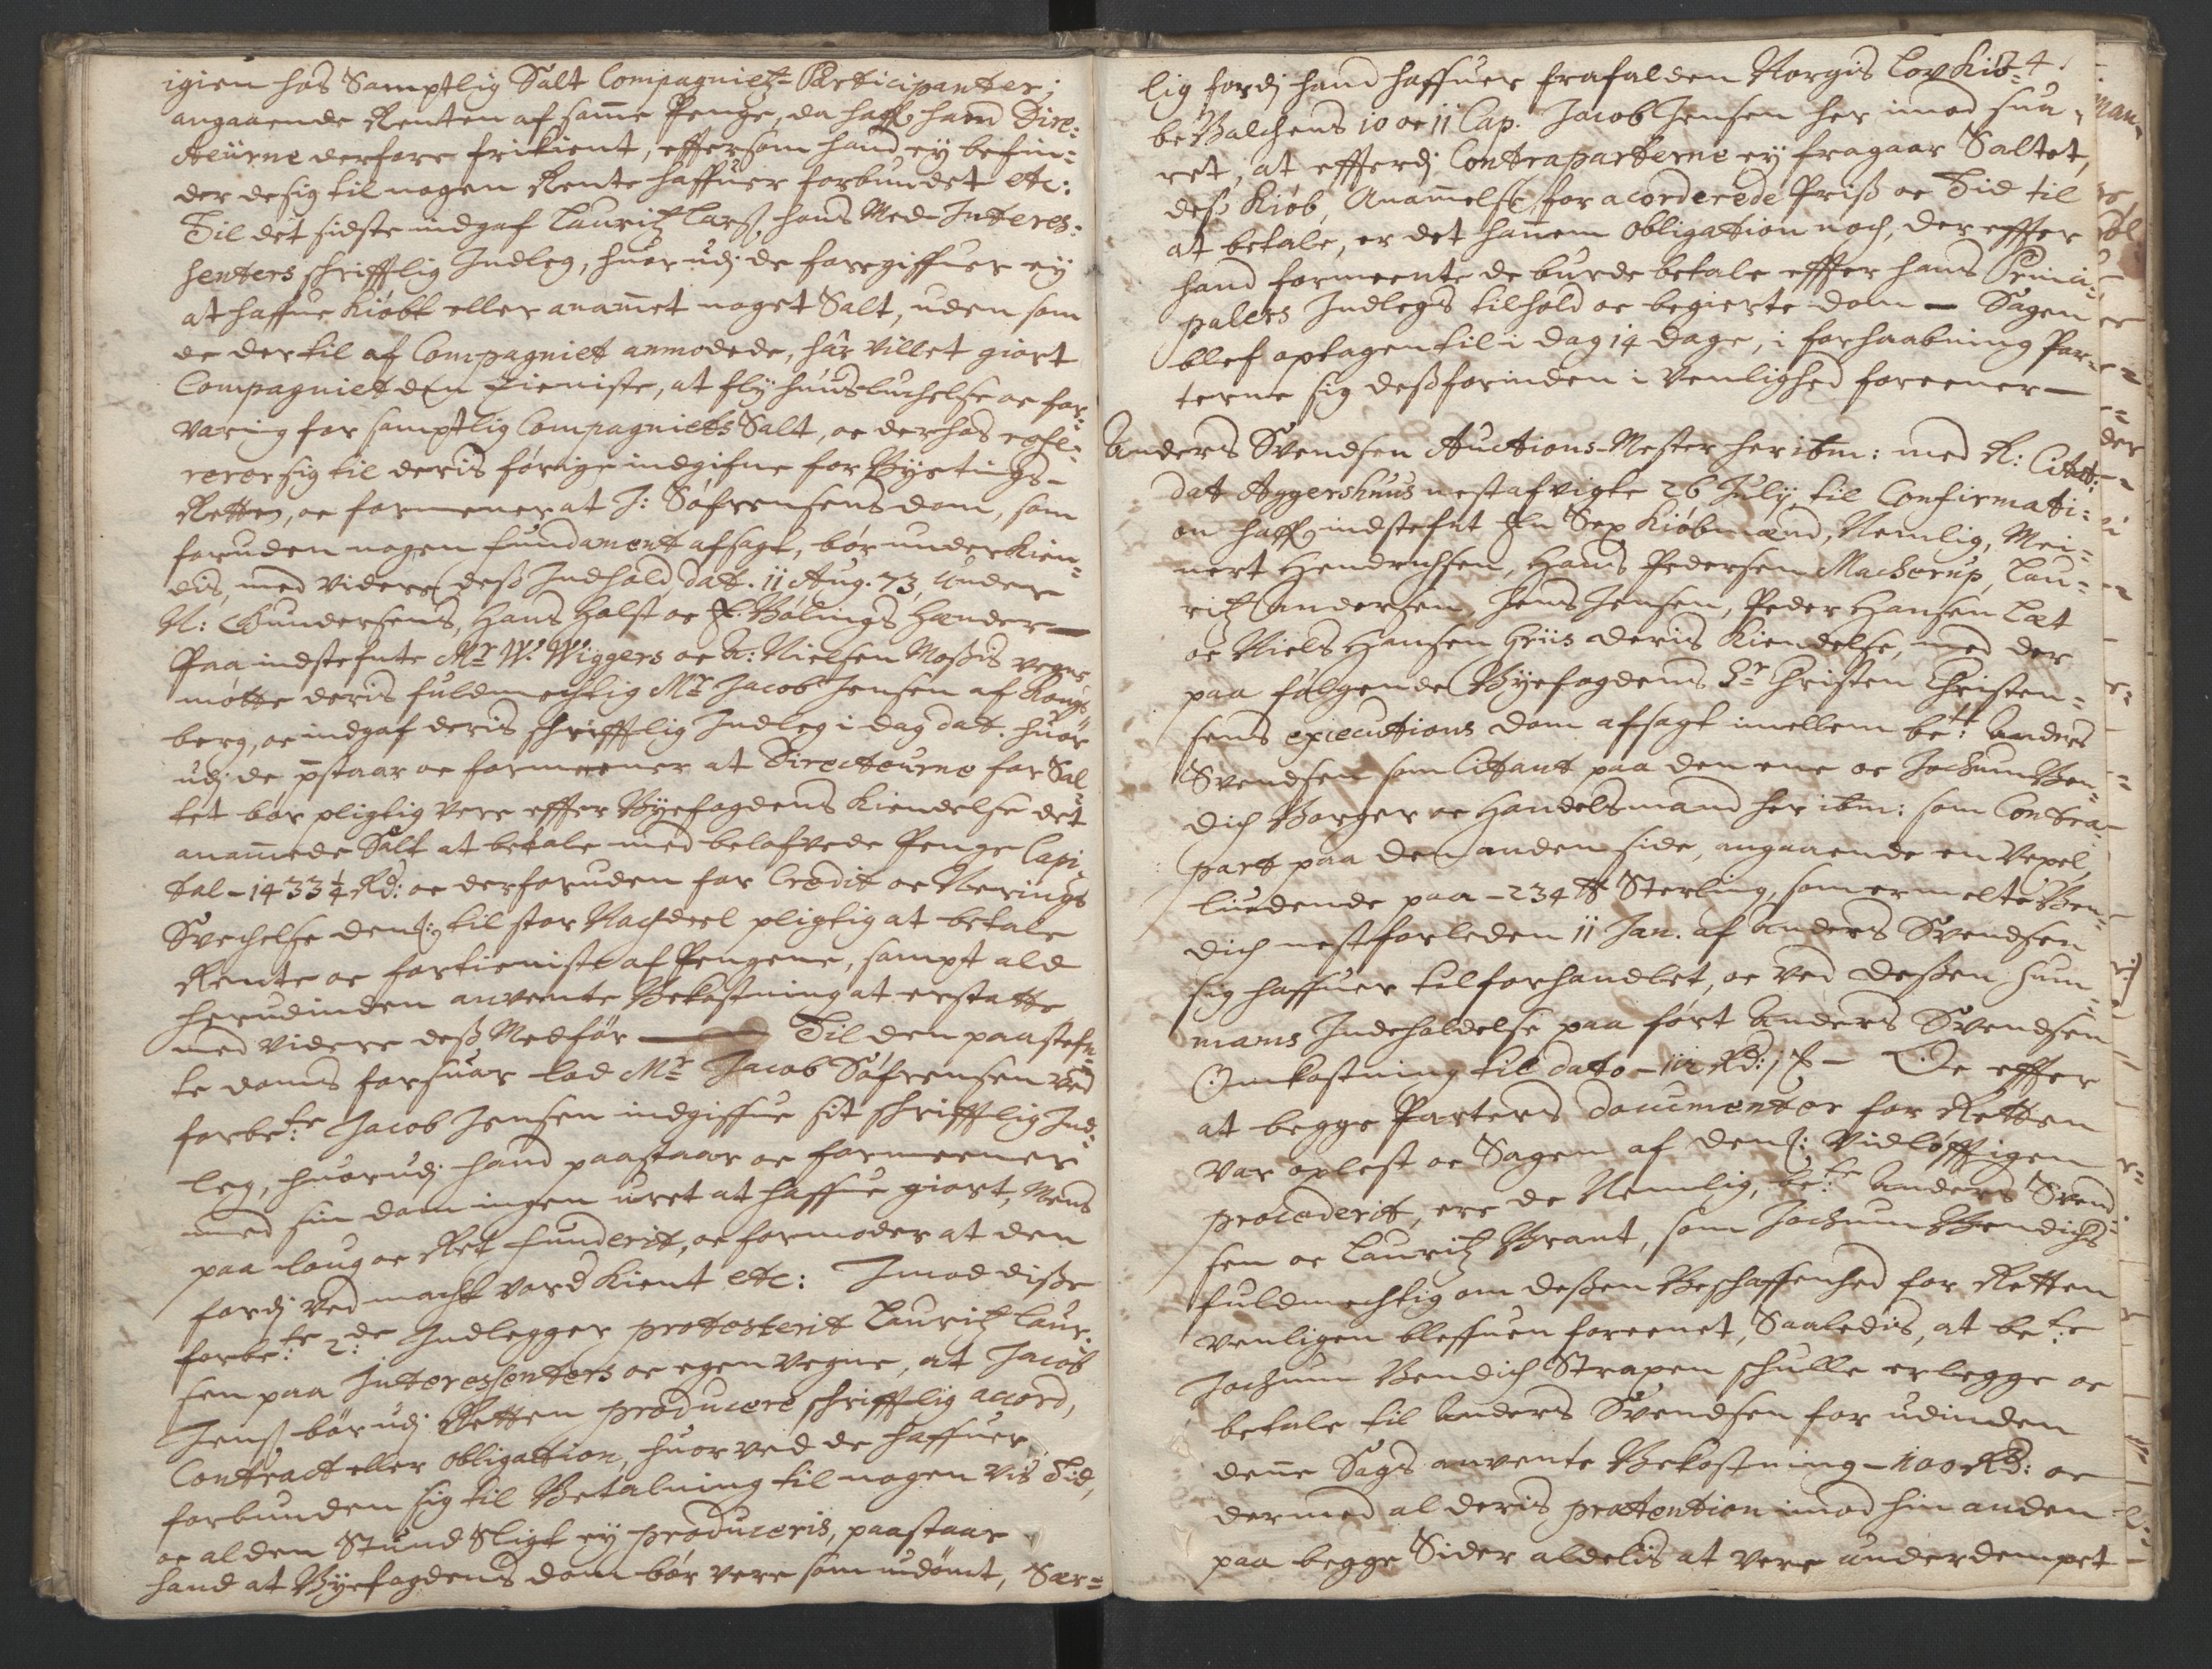 igien hos Samptlig Salt Compagniets Participanter;
angaaende Renten af same Penge, da haffr hand Dire-
cteurne derfore frikient, effersom hand ey befin-
der de sig til nogen Rente haffuer forbundet etc:
Til det sidste indgaf Lauritz Larss. hans Med-Interes-
senters schrifftlig Indleg, huorudj de foregiffuer ey
at haffue kiøbt eller anamet noget Salt, uden som
de dertil af Compagniet anmodede, hâr villet giort
Compagniet den tieniste, at fly huusluchelse oc for-
varing for samptlig Compagniets Salt, oc derhos refe-
rerer sig til deris førige indgifne for Byetings-
Retten, oc formener at J: Søfrensens dom, som
foruden nogen fundament afsagt, bør underkien-
dis, med videre dess Indhold dat. 11 Aug. 73, under
N: Gundersens, Hans Holst oc F. Bølings Hænder —
Paa indstefnte Mr W. Wiggers oc A: Nielsen Mossis vegne
møtte deris fuldmechtig Mr Jacob Jensen af Kongs-
berg, oc indgaf deris schrifftlig Indleg i dag dat. huor
udj de pstaar oc formeener at Directeurne for Sal-
tet bør pligtig vere effter Byefogdens Kiendelse det
anamede Salt at betale med belofvede Penge Capi-
tal - 1433¼ Rd: oc derforuden for Credit oc Nerings
Svechelse dens: til stor Nachdeel pligtig at betale
Rente oc fortieniste af Pengene, sampt ald
herudinden anvente Bekostning at erstatte
med videre dess Medfør — Til den paastefn-
te doms forsuar lod Mr Jacob Søfrensen ved
forbete: Jacob Jensen indgiffue sit schrifftlig Ind-
leg, huorudj hand paastaar oc formeener
med sin dom ingen uret at haffue giort, Mens
paa loug oc Ret funderit, oc formoder at den
fordj ved macht vord kient etc: Imod disse
forbete: 2de: Indlegger protesterit Lauritz Laur-
sen paa Interessenters oc egen vegne, at Jacob
Jenss. bør udj Retten producere schrifftlig accord,
Contract eller obligation, huorved de haffuer
forbunden sig til Betalning til nogen vis Tid,
oc al den Stund Sligt ey produceris, paastaar
hand at Byefogdens dom bør vere som udømt, Sær-
lig fordj hand haffuer frafalden Norgis Lov Kiø- 4.
be Balchens 10 oc 11 Cap. Jacob Jensen her imod sua-
ret, at effterdj Contraparterne ey fragaar Saltet,
dess Kiøb, Anamelse, for acorderede Priss oc Tid til
at betale, er det hanem obligation noch, der effter
hand formeente de burde betale effter hans Princi-
palers Indlegs tilhold oc begierte dom — Sagen
blef optagen til i dag 14 dage, i forhaabning Par-
terne sig dessforinden i Venlighed foreener —
Anders Svendsen Auctions-Mester her ibm: med K: Citat:
dat Aggershuus nest afvigte 26 July til Confirmati-
on haffr indstefnt En Sex Kiøbmænd, Nemlig, Mei-
nert Hendrichsen, Hans Pedersen Macherup, Lau-
ritz Andersen, Jens Jensen, Peder Hansen Læt
oc Niels Hansen Griis deris Kiendelse, med der
paa følgende Byefogdens Sr Christen Christen-
sens executions dom afsagt imellem bete: Anders
Svendsen som Citant paa den ene oc Jochum Ben-
dich Borger oc Handelsmand her ibm: som Contra-
part paa den anden side, angaaende en Vexel,
liudende paa - 234 ℔ Sterling, som ermelte Ben-
dich nestforleden 11 Jan. af Anders Svendsen
sig haffuer tilforhandlet, oc ved dessen Sum-
mams Indeholdelse paa ført Anders Svendsen
Omkostning til dato - Rd: — Oc effter
at begge Parters documenter for Retten
var oplest oc Sagen af dens: Vidløfftigen
procederit, ere de Nemlig, bete: Anders Svend-
sen oc Lauritz Brant, som Jochum Bendichs
fuldmechtig om dessen Beschaffenhed for Retten
venligen bleffuen foreenet, Saaledis, at bete:
Jochum Bendich Strapen schulle erlegge oc
betale til Anders Svendsen for udinden
dene Sags anvente Bekostning - 100 Rd: oc
dermed al deris prætention imod hin anden
paa begge Sider aldelis at vere underdempet